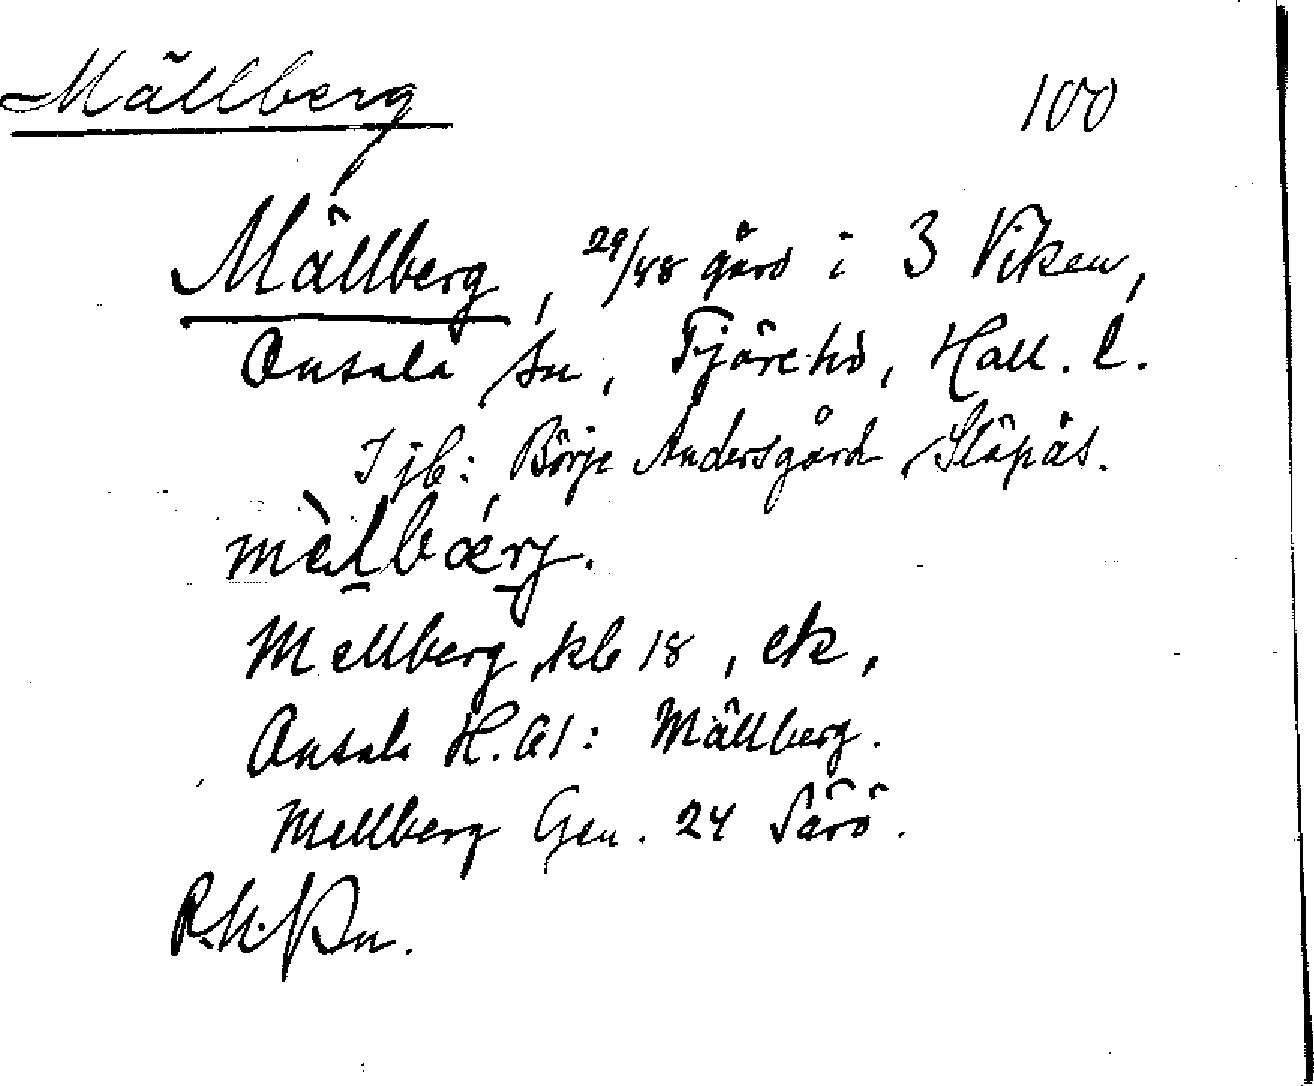 Mällberg 100
Mällberg, 29/48 gård i 3 Viken,
Onsala sn, Fjäre hd, Hall. l.
I jb: Börje Andersgård, Släpås.
mèlbærj.
Mellberg kb 18, ek,
Onsala H. A1: Mällberg.
Mellberg Gen. 24 Särö.